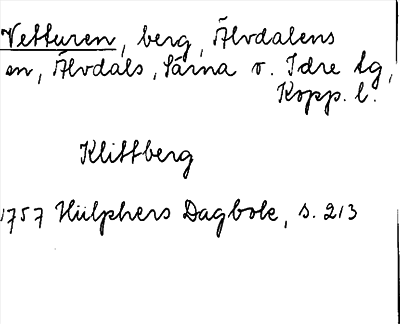 Vetturen, berg, Älvdalens
sn, Älvdals, Särna o. Idre tg,
Kopp. l.
Klittberg
1757 Hülphers Dagbok, s. 213